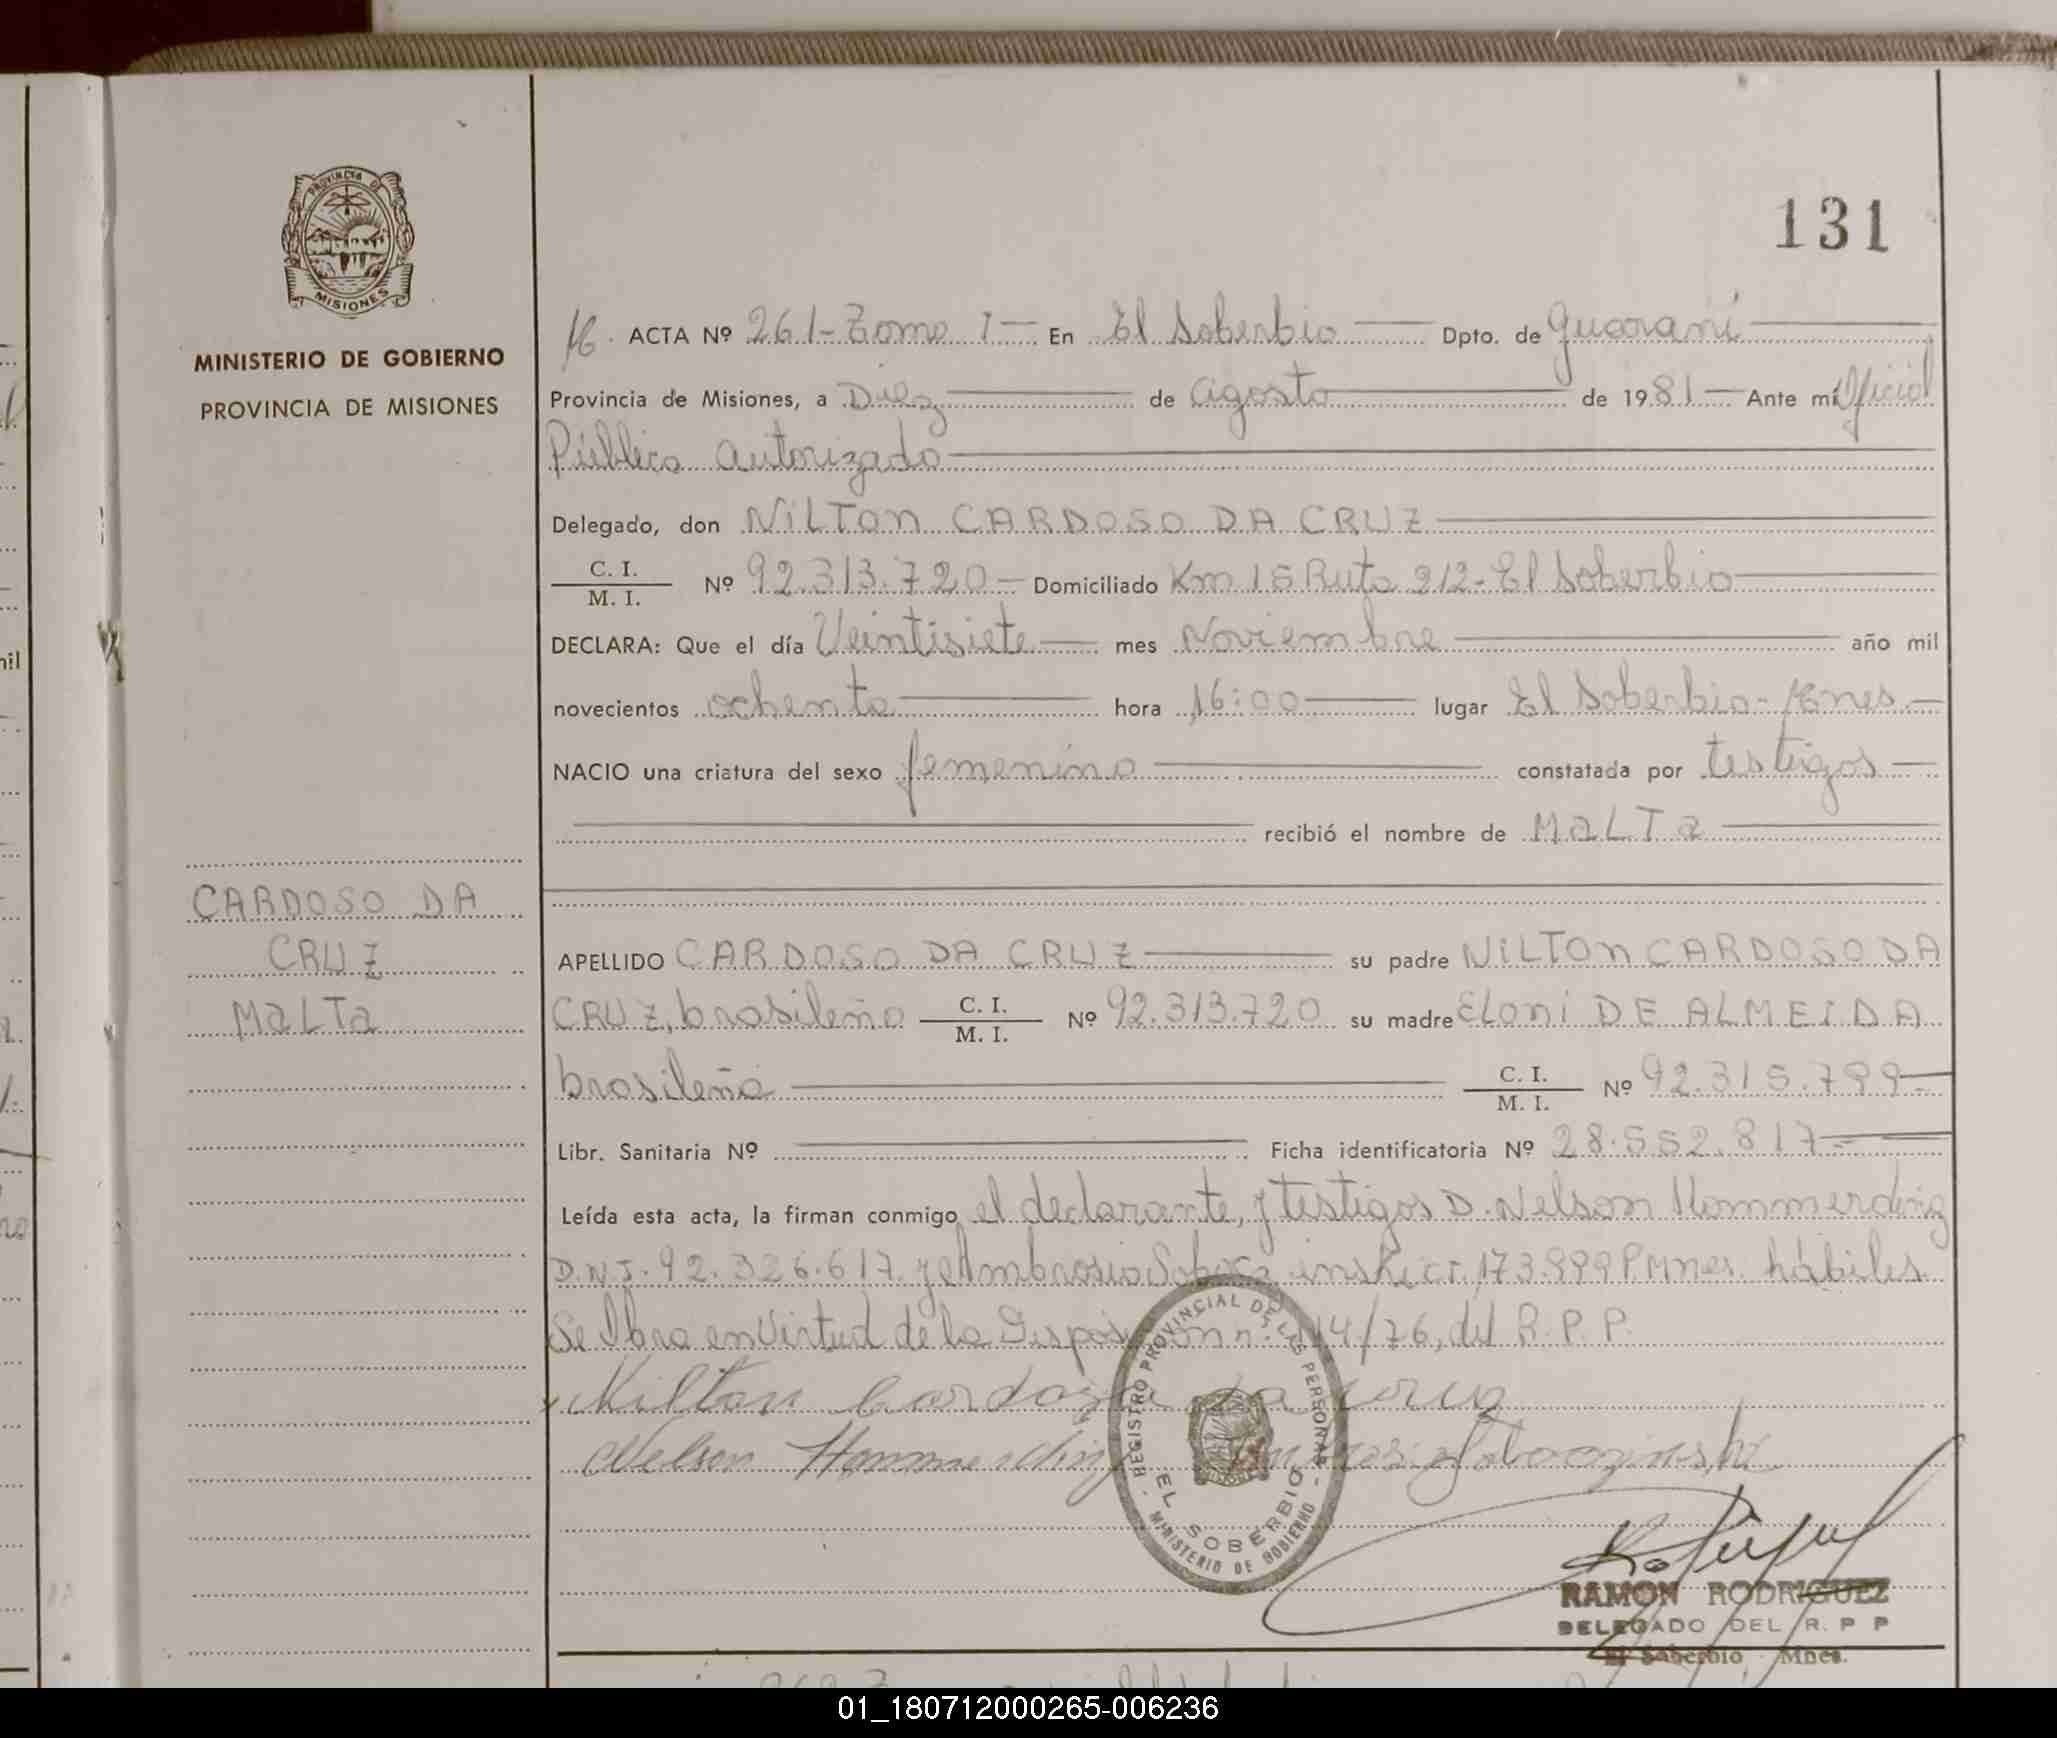 PROVINCIA DE
MISIONES
MINISTERIO DE GOBIERNO
PROVINCIA DE MISIONES
CARDOSO DA
CRUZ
MALTA
131
ACTA Nº 261-Tomo I En El Soberbio Dpto. de Guaraní
Provincia de Misiones, a Diez de Agosto de 1981 Ante mí Oficial
Público Autorizado
Delegado, don NILTON CARDOSO DA CRUZ
C. I.
M. I. Nº 92.313.720 Domiciliado Km 15 Ruta 212-El Soberbio
DECLARA: Que el día Veintisiete mes Noviembre año mil
novecientos ochenta hora 16:00 lugar El Soberbio-Mnes
NACIO una criatura del sexo femenino constatada por testigos
recibió el nombre de MALTA
APELLIDO CARDOSO DA CRUZ su padre NILTON CARDOSO DA
CRUZ, brasileño C. I. M. I. Nº 92.313.720 su madre ELONI DE ALMEIDA
brasileña C. I. M. I. Nº 92.315.799
Libr. Sanitaria Nº Ficha identificatoria Nº 28.552.817
Leída esta acta, la firman conmigo el declarante, y testigos D. Nelson Hommerding
D.N.I. 92.326.617 y Ambrosio C.I. 173.999 P Mnes. hábiles
Se labra en Virtud de la Disposición n: 114/76, del R.P.P.
Nilton Cardoso da Cruz
Nelson Hommerding
REGISTRO PROVINCIAL DE LAS PERSONAS
EL SOBERBIO
MINISTERIO DE GOBIERNO
RAMON RODRIGUEZ
DELEGADO DEL R. P P
El Soberbio Mnes.
01_180712000265-006236